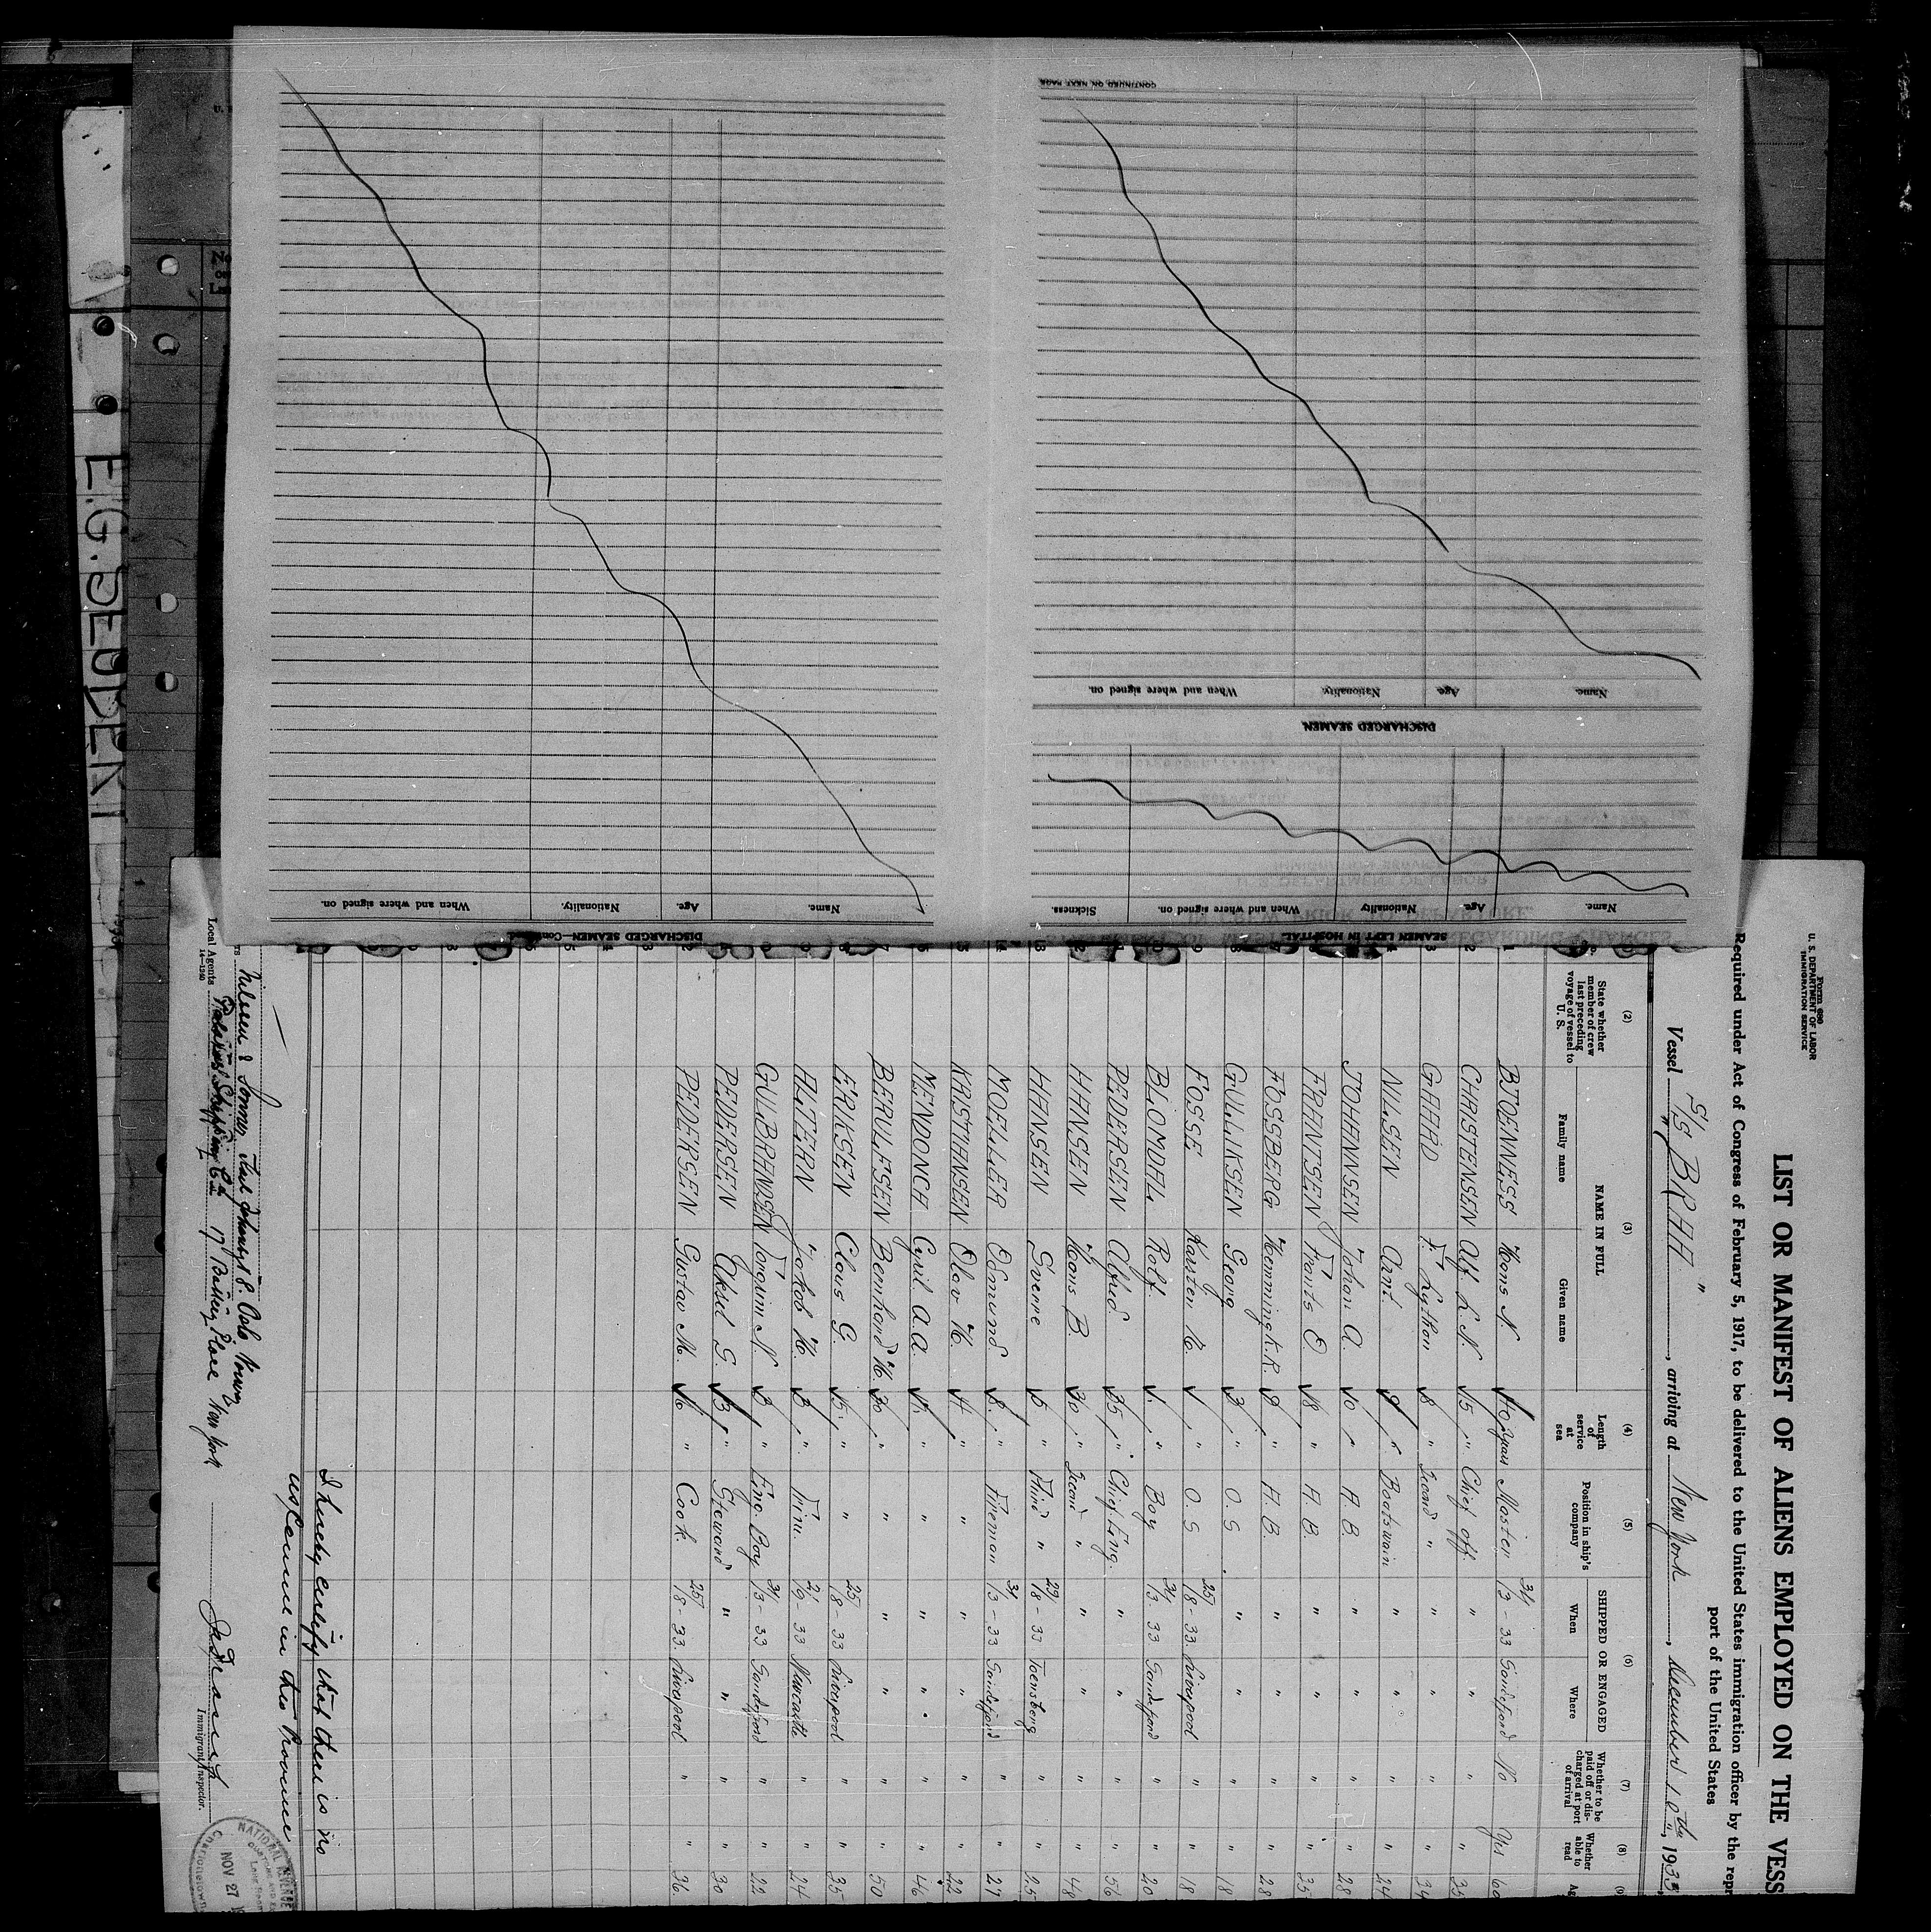 Form 680
U. S. DEPARTMENT OF LABOR
IMMIGRATION SERVICE
LIST OR MANIFEST OF ALIENS EMPLOYED ON THE VESS
Required under Act of Congress of February 5, 1917, to be delivered to the United States immigration officer by the repr
port of the United States
Vessel S/S "BRAH", arriving at New York, December 1st, 1933
(2) (3) (4) (5) (6) (7) (8)
State whether member of crew last preceding voyage of vessel to U. S.
NAME IN FULL
Family name Given name
Length of service at sea
Position in ship's company
SHIPPED OR ENGAGED
When Where
Whether to be paid off or discharged at port of arrival
Whether able to read
Ag
BJOENNESS Hans N. 40 years Master 3/4 13-33 Sandefjord No Yes 60
CHRISTENSEN Alf L. N. 15 " Chief off. " " " " 35
GAARD F. Lython 8 " Second " " " " " 34
NILSEN Arnt. 9 " Boatswain " " " " 24
JOHANNSEN Johan A. 10 " A. B. " " " " 28
FRANTSEN Frants O. 18 " A. B. " " " " 35
FOSSBERG Hemming K.R. 9 " A. B. " " " " 28
GULLIKSEN Georg 3 " O. S " " " " 18
FOSSE Karsten H. 1 " O. S 25/ 18-33 Liverpool " " 18
BLOMDAHL Rolf. 1 " Boy 3/4 13-33 Sandefjord " " 20
PEDERSEN Alfred 35 " Chief Eng. " " " " 56
HANSEN Hans B. 30 " Second " " " " " 48
HANSEN Sverre 5 " Third " 29/ 18-33 Toensberg " " 25
MOELLER Edmund 8 " Fireman 3/4 13-33 Sandefjord " " 27
KRISTIANSEN Olav H. 4 " " " " " " 22
MENDONCA Cyril A.A. " " " " " " 46
BERULFSEN Bernhard H. 30 " " " " " " 50
ERIKSEN Claus G. 15 " " 25/ 18-33 Liverpool " " 35
ALTERN Jakob H. 3 " Trim. 2/ 9-33 Newcastle " " 24
GULBRANDSEN Torgrim N. 3 " Eng. Boy 3/4 13-33 Sandefjord " " 22
PEDERSEN Aksel G. 13 " Steward " " " " 30
PEDERSEN Gustav M. 16 " Cook 25/ 18-33 Liverpool " " 36
I hereby certify that there is no
in this Province
Oslo Norway
Local Agents Shipping Co. 17 Battery Place New York
14-1240
Immigrant Inspector.
NATIONAL REVENUE
NOV 27
Charlottetown
E.G. SEUBERT
CONTINUED ON NEXT PAGE
Name. Age. Nationality. When and where signed on.
DISCHARGED SEAMEN
Name. Age. Nationality. When and where signed on. Sickness.
SEAMEN LEFT IN HOSPITAL.
Name. Age. Nationality. When and where signed on.
DISCHARGED SEAMEN—Con